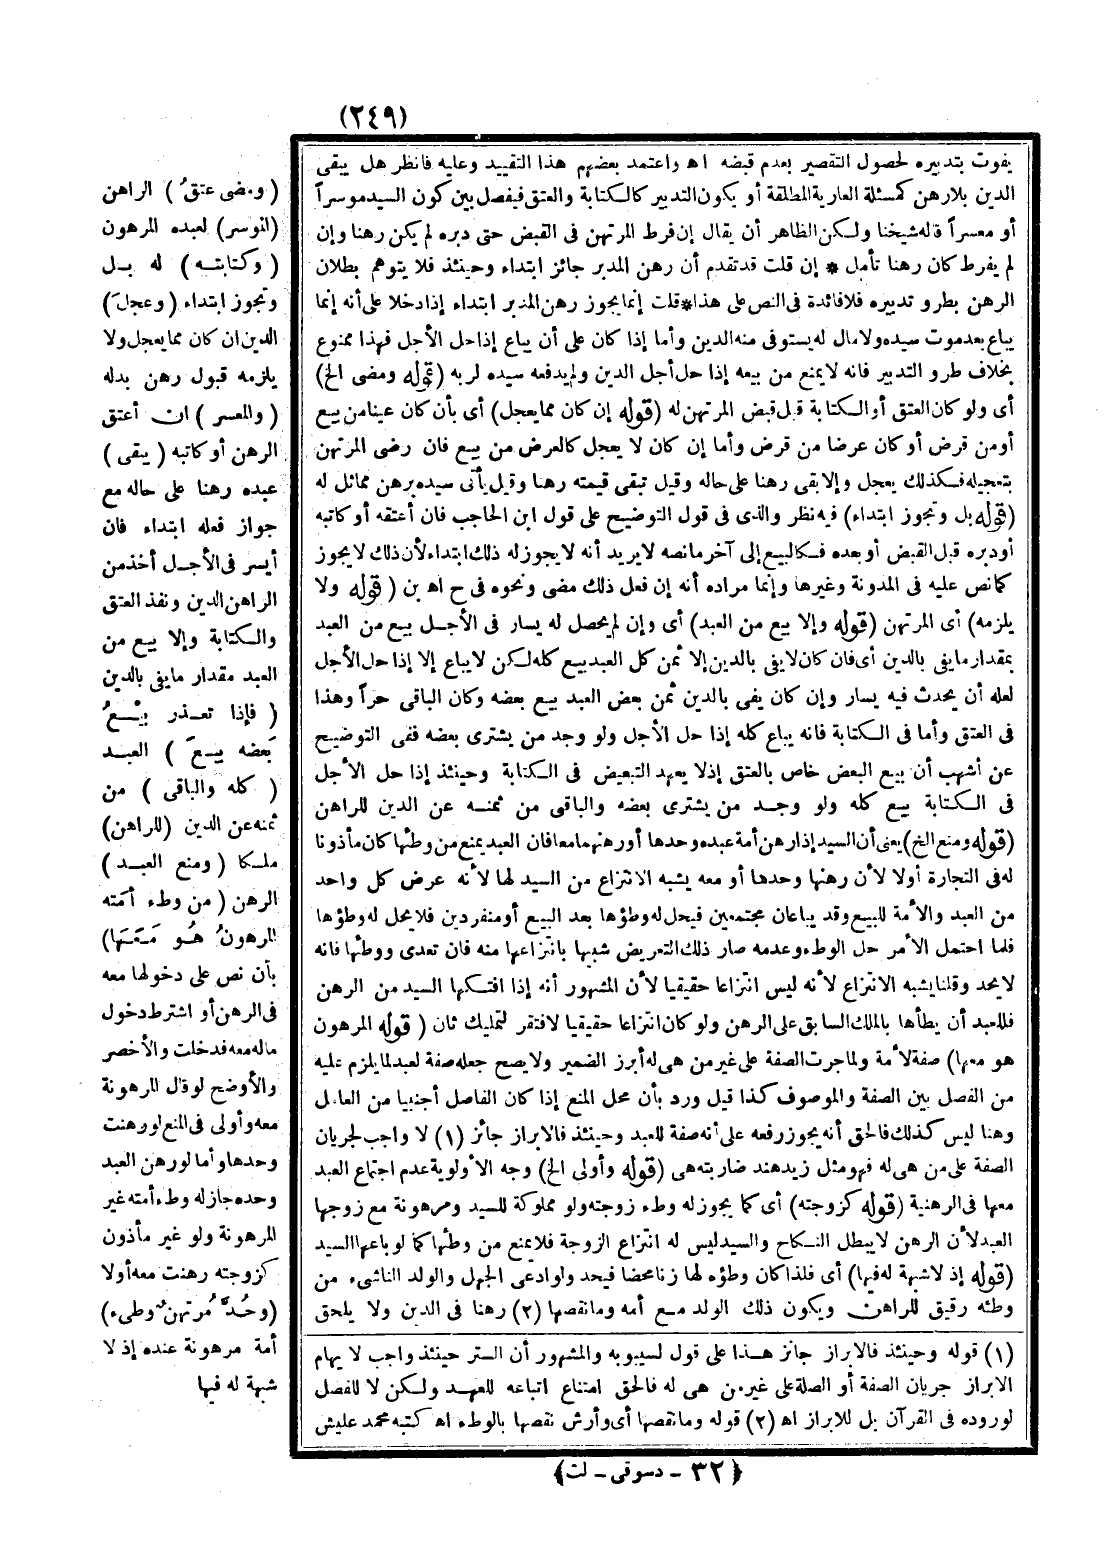 (٢٤٩)
يفوت بتدبيره لحصول التقصير بعدم قبضه اه واعتمد بعضهم هذا التقييد وعليه فانظر هل يبقى
الدين بلا رهن كمسئلة العارية المطلقة أو يكون التدبير كالكتابة والعتق فيفصل بين كون السيد موسراً
أو معسراً قاله شيخنا ولكن الظاهر أن يقال إن فرط المرتهن فى القبض حتى دبره لم يكن رهنا وإن
لم يفرط كان رهنا تأمل * إن قلت قد تقدم أن رهن المدبر جائز ابتداء وحينئذ فلا يتوهم بطلان
الرهن بطرو تدبيره فلا فائدة فى النص على هذا * قلت إنما يجوز رهن المدبر ابتداء إذا دخلا على أنه إنما
يباع بعد موت سيده ولا مال له يستوفى منه الدين وأما إذا كان على أن يباع إذا حل الأجل فهذا ممنوع
بخلاف طرو التدبير فانه لا يمنع من بيعه إذا حل أجل الدين ولم يدفعه سيده لربه (قوله ومضى الخ)
أى ولو كان العتق أو الكتابة قبل قبض المرتهن له (قوله إن كان مما يعجل) أى بأن كان عينا من بيع
أو من قرض أو كان عرضا من قرض وأما إن كان لا يعجل كالعرض من بيع فان رضى المرتهن
بتعجيله فكذلك يعجل وإلا بقى رهنا على حاله وقيل تبقى قيمته رهنا وقيل يأتى سيده برهن مماثل له
(قوله بل وتجوز ابتداء) فيه نظر والذى فى قول التوضيح على قول ابن الحاجب فان أعتقه أو كاتبه
أو دبره قبل القبض أو بعده فكالبيع إلى آخر مانصه لا يريد أنه لا يجوز له ذلك ابتداء لأن ذلك لا يجوز
كما نص عليه فى المدونة وغيرها وإنما مراده أنه إن فعل ذلك مضى ونحوه فى ح اه بن ( قوله ولا
يلزمه) أى المرتهن (قوله وإلا بيع من العبد) أى وإن لم يحصل له يسار فى الأجل بيع من العبد
بمقدار ما يفى بالدين أى فان كان لا يفى بالدين إلا ثمن كل العبد بيع كله لكن لا يباع إلا إذا حل الأجل
لعله أن يحدث فيه يسار وإن كان يفى بالدين ثمن بعض العبد بيع بعضه وكان الباقى حراً وهذا
فى العتق وأما فى الكتابة فانه يباع كله إذا حل الأجل ولو وجد من يشترى بعضه ففى التوضيح
عن أشهب أن بيع البعض خاص بالعتق إذ لا يعهد التبعيض فى الكتابة وحينئذ إذا حل الأجل
فى الكتابة بيع كله ولو وجد من يشترى بعضه والباقى من ثمنه عن الدين للراهن
(قوله ومنع الخ) يعنى أن السيد إذا رهن أمة عبده وحدها أو رهنهما معا فان العبد يمنع من وطئها كان مأذونا
له فى التجارة أولا لأن رهنها وحدها أو معه يشبه الانتزاع من السيد لها لأنه عرض كل واحد
من العبد والأمة للبيع وقد يباعان مجتمعين فيحل له وطؤها بعد البيع أو منفردين فلا يحل له وطؤها
فلما احتمل الأمر حل الوطء وعدمه صار ذلك التعريض شبها بانتزاعها منه فان تعدى ووطئها فانه
لا يحد وقلنا يشبه الانتزاع لأنه ليس انتزاعا حقيقيا لأن المشهور أنه إذا افتكها السيد من الرهن
فللعبد أن يطأها بالملك السابق على الرهن ولو كان انتزاعا حقيقيا لافتقر لتمليك ثان ( قوله المرهون
هو معها) صفة لأمة ولما جرت الصفة على غير من هى له أبرز الضمير ولا يصح جعله صفة لعبد لما يلزم عليه
من الفصل بين الصفة والموصوف كذا قيل ورد بأن محل المنع إذا كان الفاصل أجنبيا من العامل
وهنا ليس كذلك فالحق أنه يجوز رفعه على أنه صفة للعبد وحينئذ فالابراز جائز (١) لا واجب لجريان
الصفة على من هى له فهو مثل زيد هند ضاربته هى (قوله وأولى الخ) وجه الأولوية عدم اجتماع العبد
معها فى الرهنية (قوله كزوجته) أى كما يجوز له وطء زوجته ولو مملوكة للسيد ومرهونة مع زوجها
العبد لأن الرهن لا يبطل النكاح والسيد ليس له انتزاع الزوجة فلا يمنع من وطئها كما لو باعها السيد
(قوله إذ لا شبهة له فيها) أى فلذا كان وطؤه لها زنا محضا فيحد ولو ادعى الجهل والولد الناشىء من
وطئه رقيق للراهن ويكون ذلك الولد مع أمه وما نقصها (٢) رهنا فى الدين ولا يلحق
(١) قوله وحينئذ فالابراز جائز هذا على قول لسيبويه والمشهور أن الستر حينئذ واجب لا يهام
الابراز جريان الصفة أو الصلة على غير من هى له فالحق امتناع اتباعه للعهد ولكن لا للفصل
لوروده فى القرآن بل للابراز اه (٢) قوله وما نقصها أى وأرش نقصها بالوطء اه كتبه محمد عليش
( ومضى عتقُ ) الراهن
(الموسر) لعبده المرهون
( وكتابته ) له بل
وتجوز ابتداء (وعجلَ)
الدين ان كان مما يعجل ولا
يلزمه قبول رهن بدله
( والمعسر ) ان أعتق
الرهن أو كاتبه ( يبقى )
عبده رهنا على حاله مع
جواز فعله ابتداء فان
أيسر فى الأجل أخذ من
الراهن الدين ونفذ العتق
والكتابة وإلا بيع من
العبد مقدار ما يفى بالدين
( فإذا تعذر بيْعُ
بَعضه بيعَ ) العبد
( كله والباقى ) من
ثمنه عن الدين (للراهن)
ملكا ( ومنع العبد )
الرهن ( من وطء أمَته
المرهونُ هُو مَعَها)
بأن نص على دخولها معه
فى الرهن أو اشترط دخول
ماله معه فدخلت والأخصر
والأوضح لو قال المرهونة
معه وأولى فى المنع لو رهنت
وحدها وأما لو رهن العبد
وحده جاز له وطء أمته غير
المرهونة ولو غير مأذون
كزوجته رهنت معه أولا
(وحُدَّ مُرتهنٌ وطىء)
أمة مرهونة عنده إذ لا
شبهة له فيها
﴿ ٣٢ - دسوقى - لث ﴾